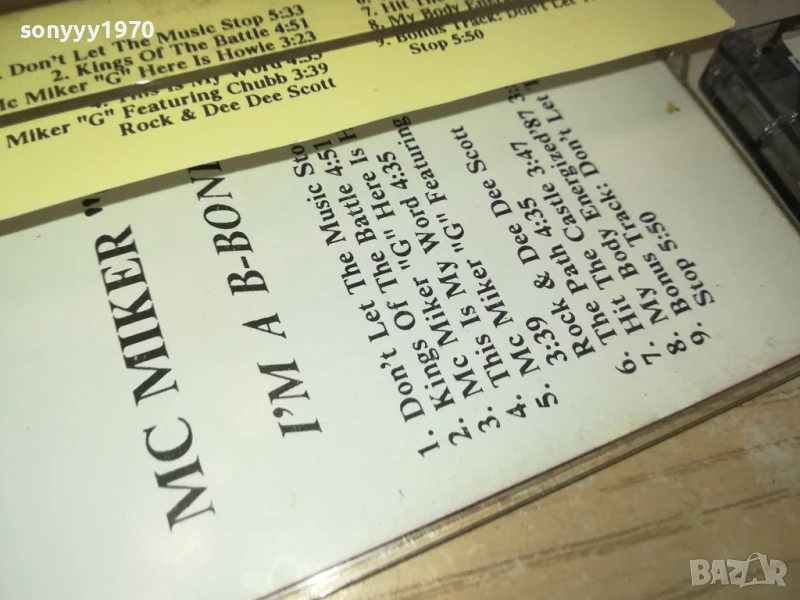 sonyyy1970
Don't Let The Music Stop 5:33
2. Kings Of The Battle 4:51
Mc Miker "G" Here Is Howie 3:23
This Is My Word 4:35
Miker "G" Featuring Chubb
Rock & Dee Dee Scott 3:39
7. Hit The
8. My Body
9. Bonus Track: Don't Let
Stop 5:50
MC MIKER "
I'M A B-
1. Don't Let The Music Sto
2. Kings Of The Battle 4:51
3. Mc Miker "G" Here Is H
4. This Is My Word 4:35
5. Mc Miker "G" Featuring
Rock & Dee Dee Scott
3:39
6. The Path 4:35
7. Hit The Castle 3:47
8. My Body Energized'87 3:
9. Bonus Track: Don't Let
Stop 5:50
BAZAR